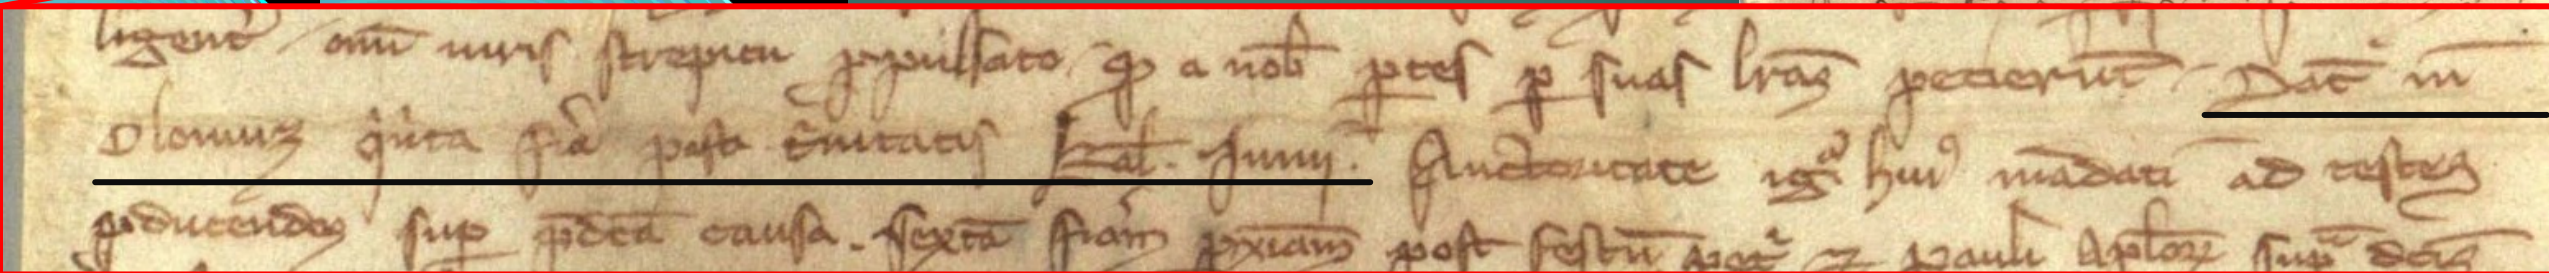 ligent᷑ omī iuris strepitu ꝓpulsato, qꝫ a nob̄ ꝑtes ꝑ suas lr̄as petierūt. Dat̄ in
Olomuz qͥnta fr̄a post t͛nitatis kal̄. Junii. Auctoritate igᷓ huiꝰ mādati ad testes
ꝓducendos sup p̄dc̄a causa. sextā fr̄am ꝓxiam̄ post festū pet͛ ⁊ pauli Apl̄oꝝ sup̄